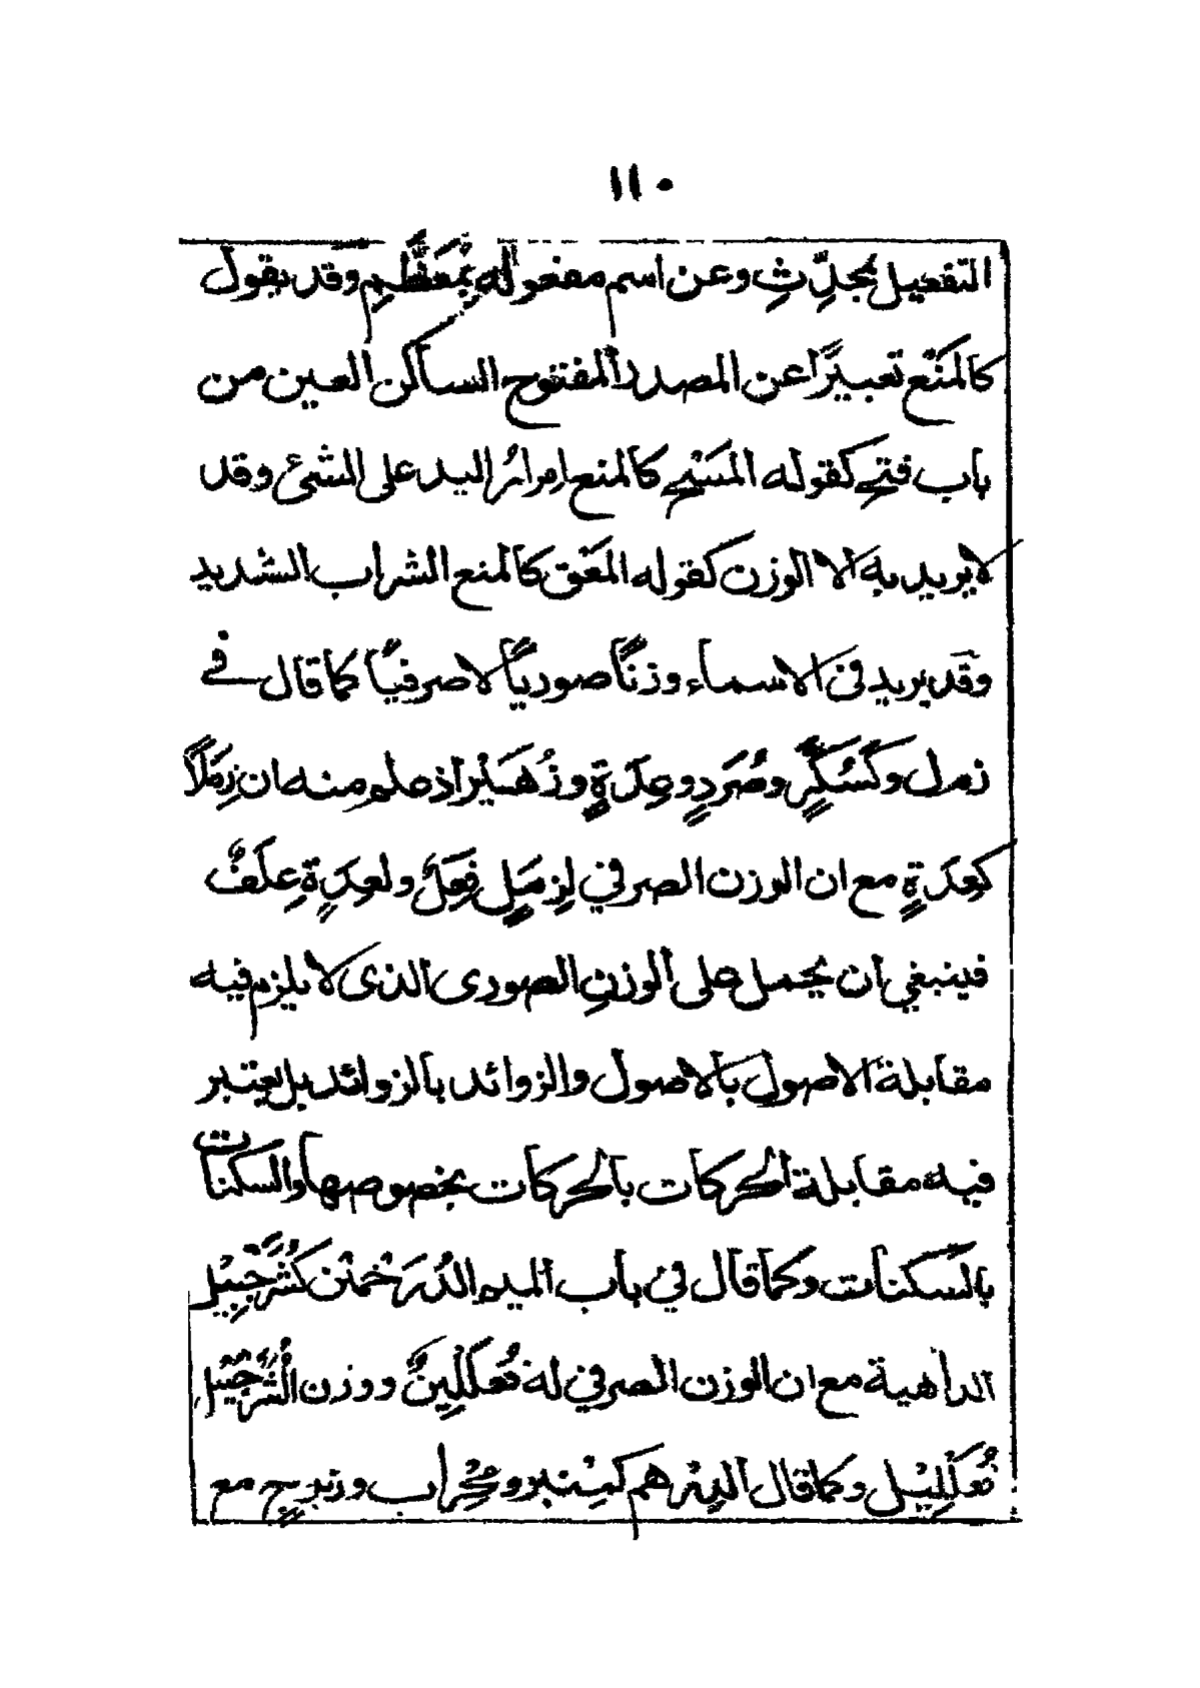 ١١٠
التفعيل بمحدِّثٍ وعن اسم مفعوله بمُعَظَّمٍ وقد يقول
كالمَنْع تعبيرًا عن المصدر المفتوح الساكن العين من
باب فتح كقوله المَسْح كالمنع امرارُ اليد على الشئ وقد
لا يريد به الا الوزن كقوله المَعْق كالمنع الشراب الشديد
وقد يريد في الاسماء وزنًا صوريًا لا صرفيًا كما قال في
زمل وكسُكَّرٍ وصُرَدٍ وعِدَةٍ وزُهَيْرٍ اذ علم منه ان زِمَلًا
كعِدَةٍ مع ان الوزن الصرفي لِزِمَلٍ فِعَلٌ ولعِدَةٍ عِلَةٌ
فينبغي ان يحمل على الوزن الصوري الذي لا يلزم فيه
مقابلة الاصول بالاصول والزوائد بالزوائد بل يعتبر
فيه مقابلة الحركات بالحركات بخصوصها والسكنات
بالسكنات وكما قال في باب الميم الدُّرَخْمِين كشُرَحْبِيْل
الداهية مع ان الوزن الصرفي له فُعَلِّلِينٌ ووزن الشُرَحْبِيْل
فُعَلِّلِيْل وكما قال الدِرْهم كمِنْبر ومِحْراب وزِبْرِج مع